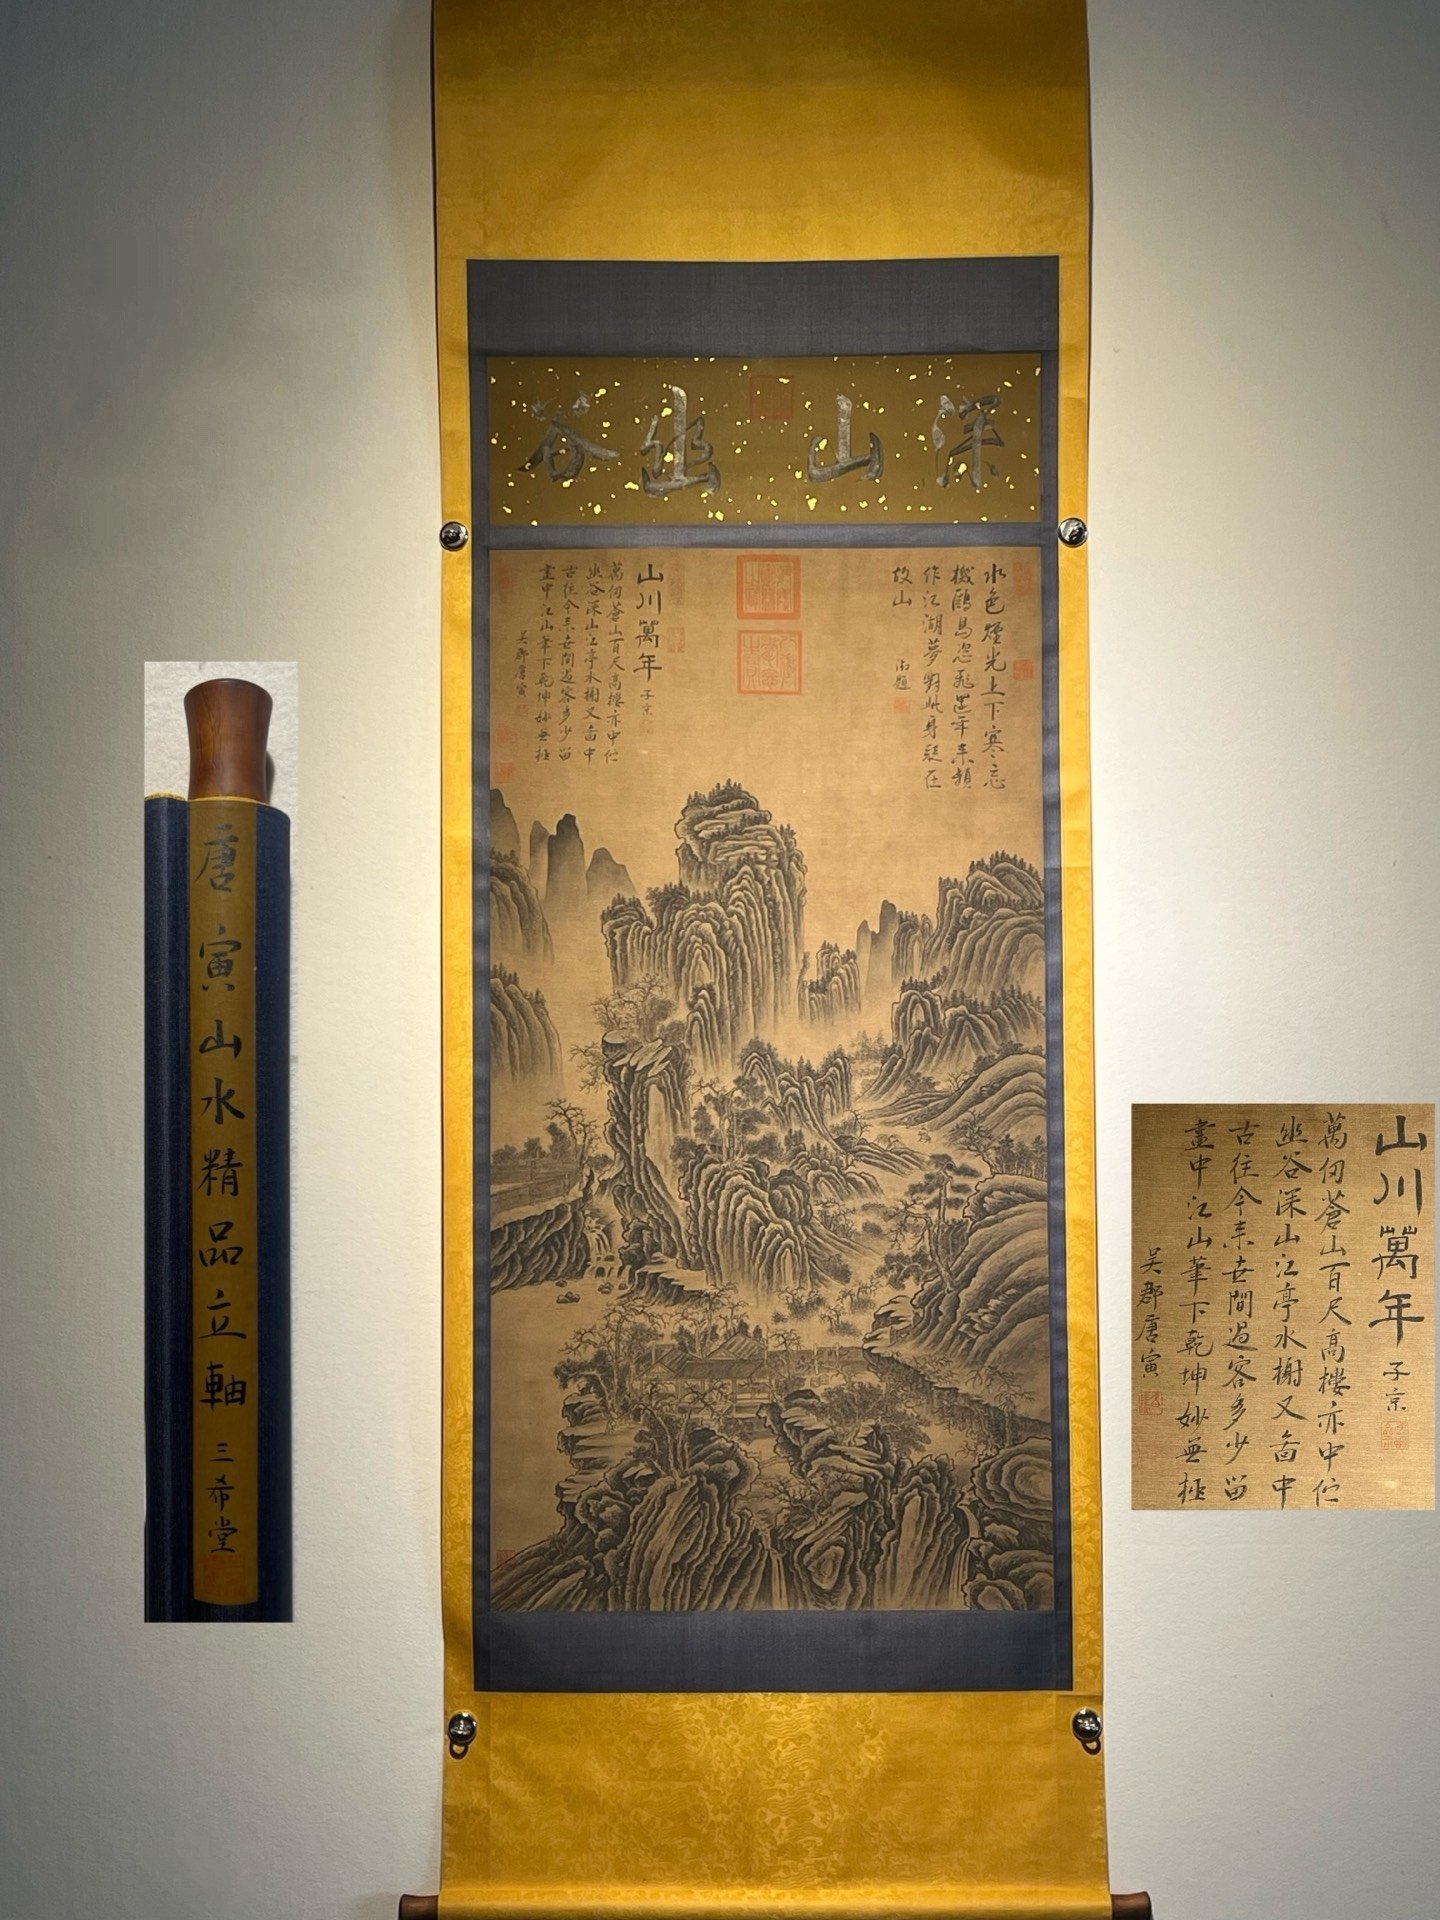 深山幽谷
水色煙光上下寒忘
機鷗鳥恣飛還年來頻
作江湖夢對此身疑在
故山
御題
山川萬年
子京
萬仞蒼山百尺高樓亦中伫
幽谷深山江亭水榭又畫中
古往今来世間過客多少留
畫中江山筆下乾坤妙無極
吳郡唐寅
唐寅山水精品立軸
三希堂
山川萬年
子京
萬仞蒼山百尺高樓亦中伫
幽谷深山江亭水榭又畣中
古往今来世間過客多少留
畫中江山筆下乾坤妙無極
吳郡唐寅